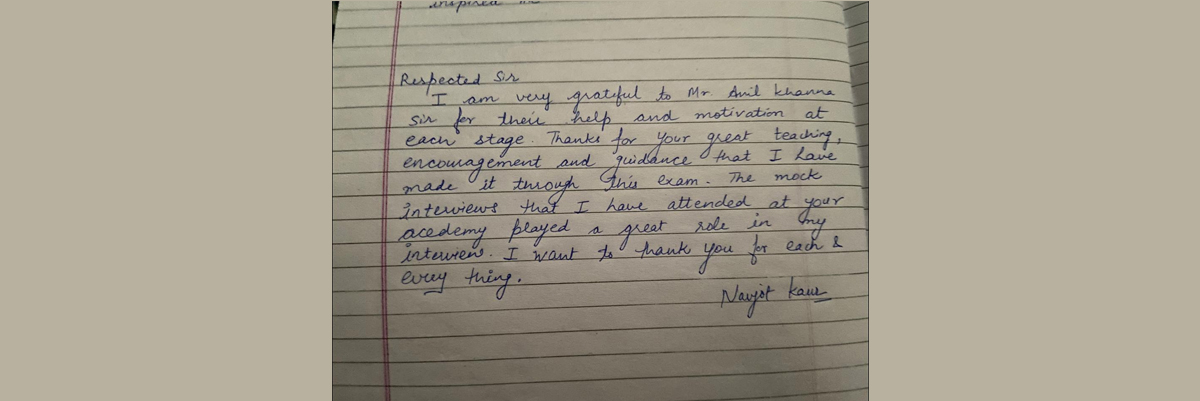 inspired me
Respected Sir
I am very grateful to Mr. Anil Khanna
Sir for their help and motivation at
each stage. Thanks for your great teaching,
encouragement and guidance that I have
made it through this exam. The mock
interviews that I have attended at your
acedemy played a great role in my
interview. I want to thank you for each &
every thing.
Navjot Kaur